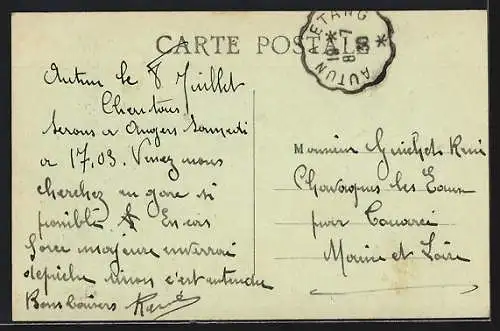 CARTE POSTALE
AUTUN A ETANG
18 * 7
8 30
*
Autun le 8 Juillet
Cher tous
Serons a Angers Samedi
a 17.03. Venez nous
cherchez en gare si
possible. En cas
force majeure enverrai
dépêche sinon c'est entendu
Bons baisers René
Monsieur Guichet René
Chavagnes les Eaux
par Thouarcé
Maine et Loire